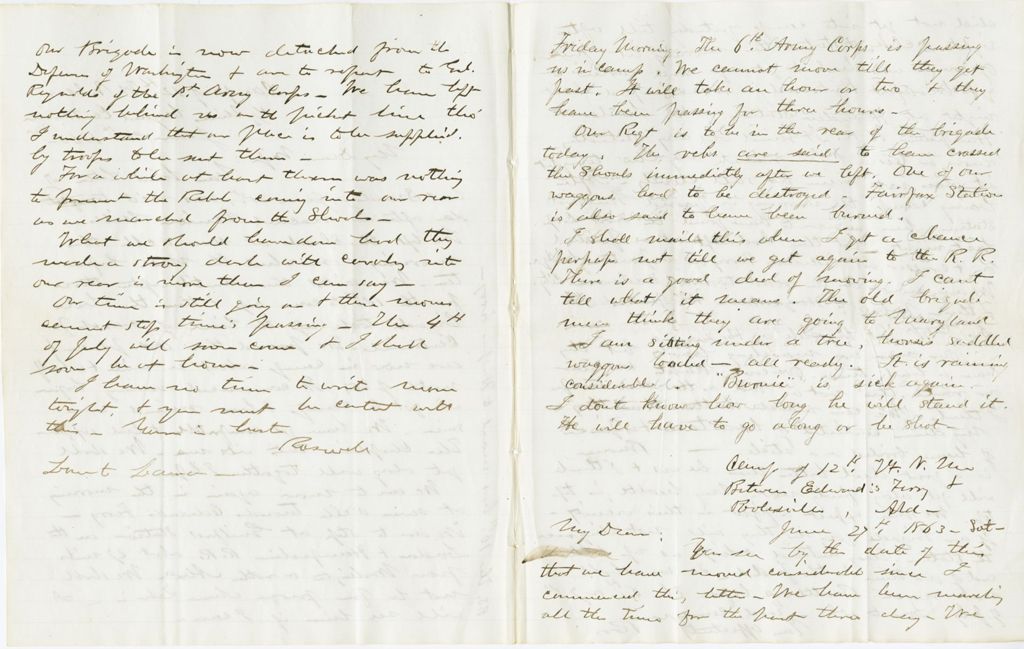 Our Brigade is now detached from the
Defences of Washington & are to report to Genl.
Reynolds of the 1st Army Corps - We have left
nothing behind us on the picket line tho'
I understand that our place is to be supplied.
by troops to be sent there -
For a while at least there was nothing
to prevent the Rebels coming into our rear
as we marched from the Shoals -
What we should have done had they
made a strong dash with cavalry into
our rear is more than I can say -
Our time is still going on & these moves
cannot stop time's passing - The 4th
of July will soon come & I shall
soon be at home -
I have no time to write more
tonight, & you must be content with
this - Yours in love
Roswell
Friday Morning. The 6th. Army Corps is passing
us in camp. We cannot move till they get
past. It will take an hour or two & they
have been passing for three hours -
Our Regt is to be in the rear of the brigade
today. The rebs are said to have crossed
the Shoals immediately after we left. One of our
waggons had to be destroyed - Fairfax Station
is also said to have been burned.
I shall mail this when I get a chance
perhaps not till we get again to the R.R.
There is a good deal of moving. I can't
tell what it means. The old brigade
men think they are going to Maryland
I am sitting under a tree, horses saddled
waggons loaded - all ready. It is raining
considerable. "Brownie" is sick again.
I dont know how long he will stand it.
He will have to go along or be shot -
Camp of 12th. Vt. V. M.
Between Edward's Ferry &
Poolesville, Md -
June 27th 1863 - Sat -
My Dear:
You see by the date of this
that we have moved considerable since I
commenced this letter - We have been marching
all the time for the past three days - We